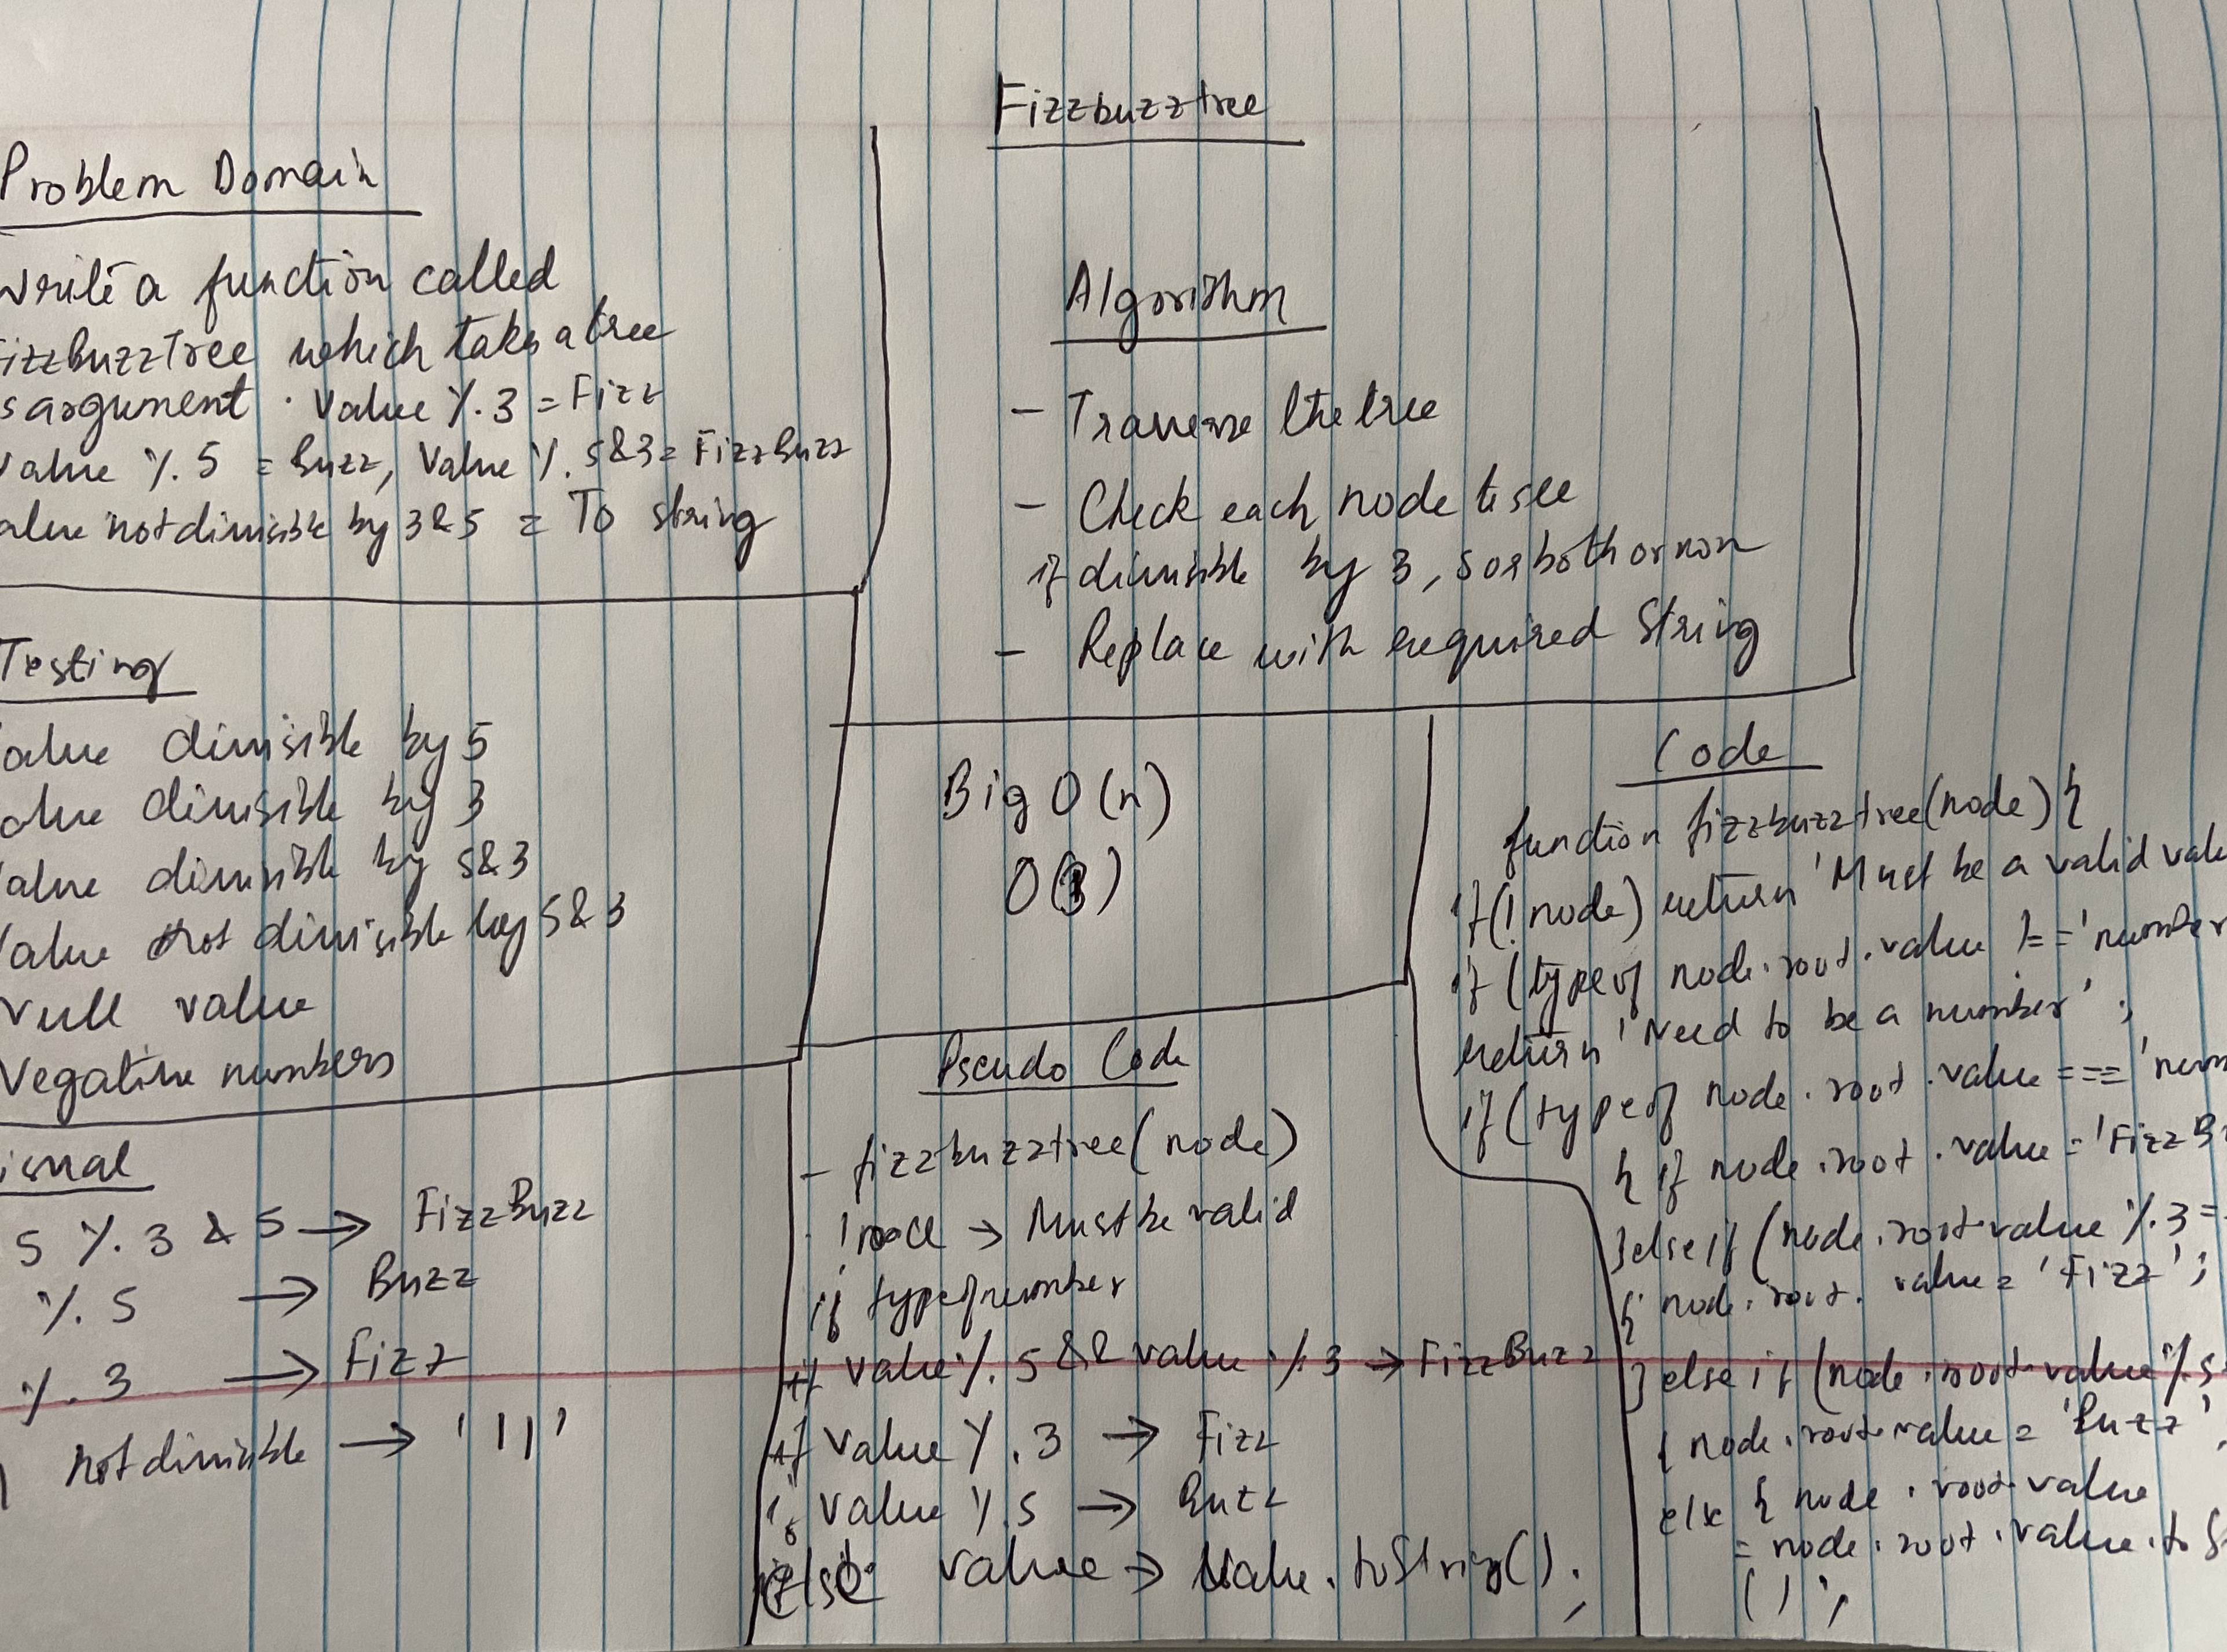 Fizzbuzztree
Problem Domain
Write a function called
FizzBuzzTree which takes a tree
as argument . Value % 3 = Fizz
Value % 5 = Buzz, Value % 5&3 = FizzBuzz
alue not divisible by 3&5 = To string
Testing
Value divisible by 5
alue divisible by 3
Value divisible by 5&3
Value not divisible by 5&3
Null value
Negative numbers
isual
5 % 3 & 5 → FizzBuzz
% 5 → Buzz
% 3 → Fizz
not divisible → '11'
Algorithm
- Traverse the tree
- Check each node to see
if divisible by 3, 5 or both or non
- Replace with required String
Big O(n)
O(1)
Pseudo Code
- fizzbuzztree(node)
- !node → Must be valid
if typeof number
if value % 5 && value % 3 → FizzBuzz
if value % 3 → Fizz
if value % 5 → Buzz
else value → value.toString();
Code
function fizzbuzztree(node) {
if(!node) return 'Must be a valid valu
if (typeof node.root.value !== 'number
return 'Need to be a number' ;
if (typeof node.root.value === 'num
{ if node.root.value = 'FizzB
}else if (node.root.value % 3 =
{ node.root.value = 'Fizz' ;
} else if (node.root.value % 5
{ node.root.value = 'Buzz'
else { node.root.value
= node.root.value.to S
( ) ;